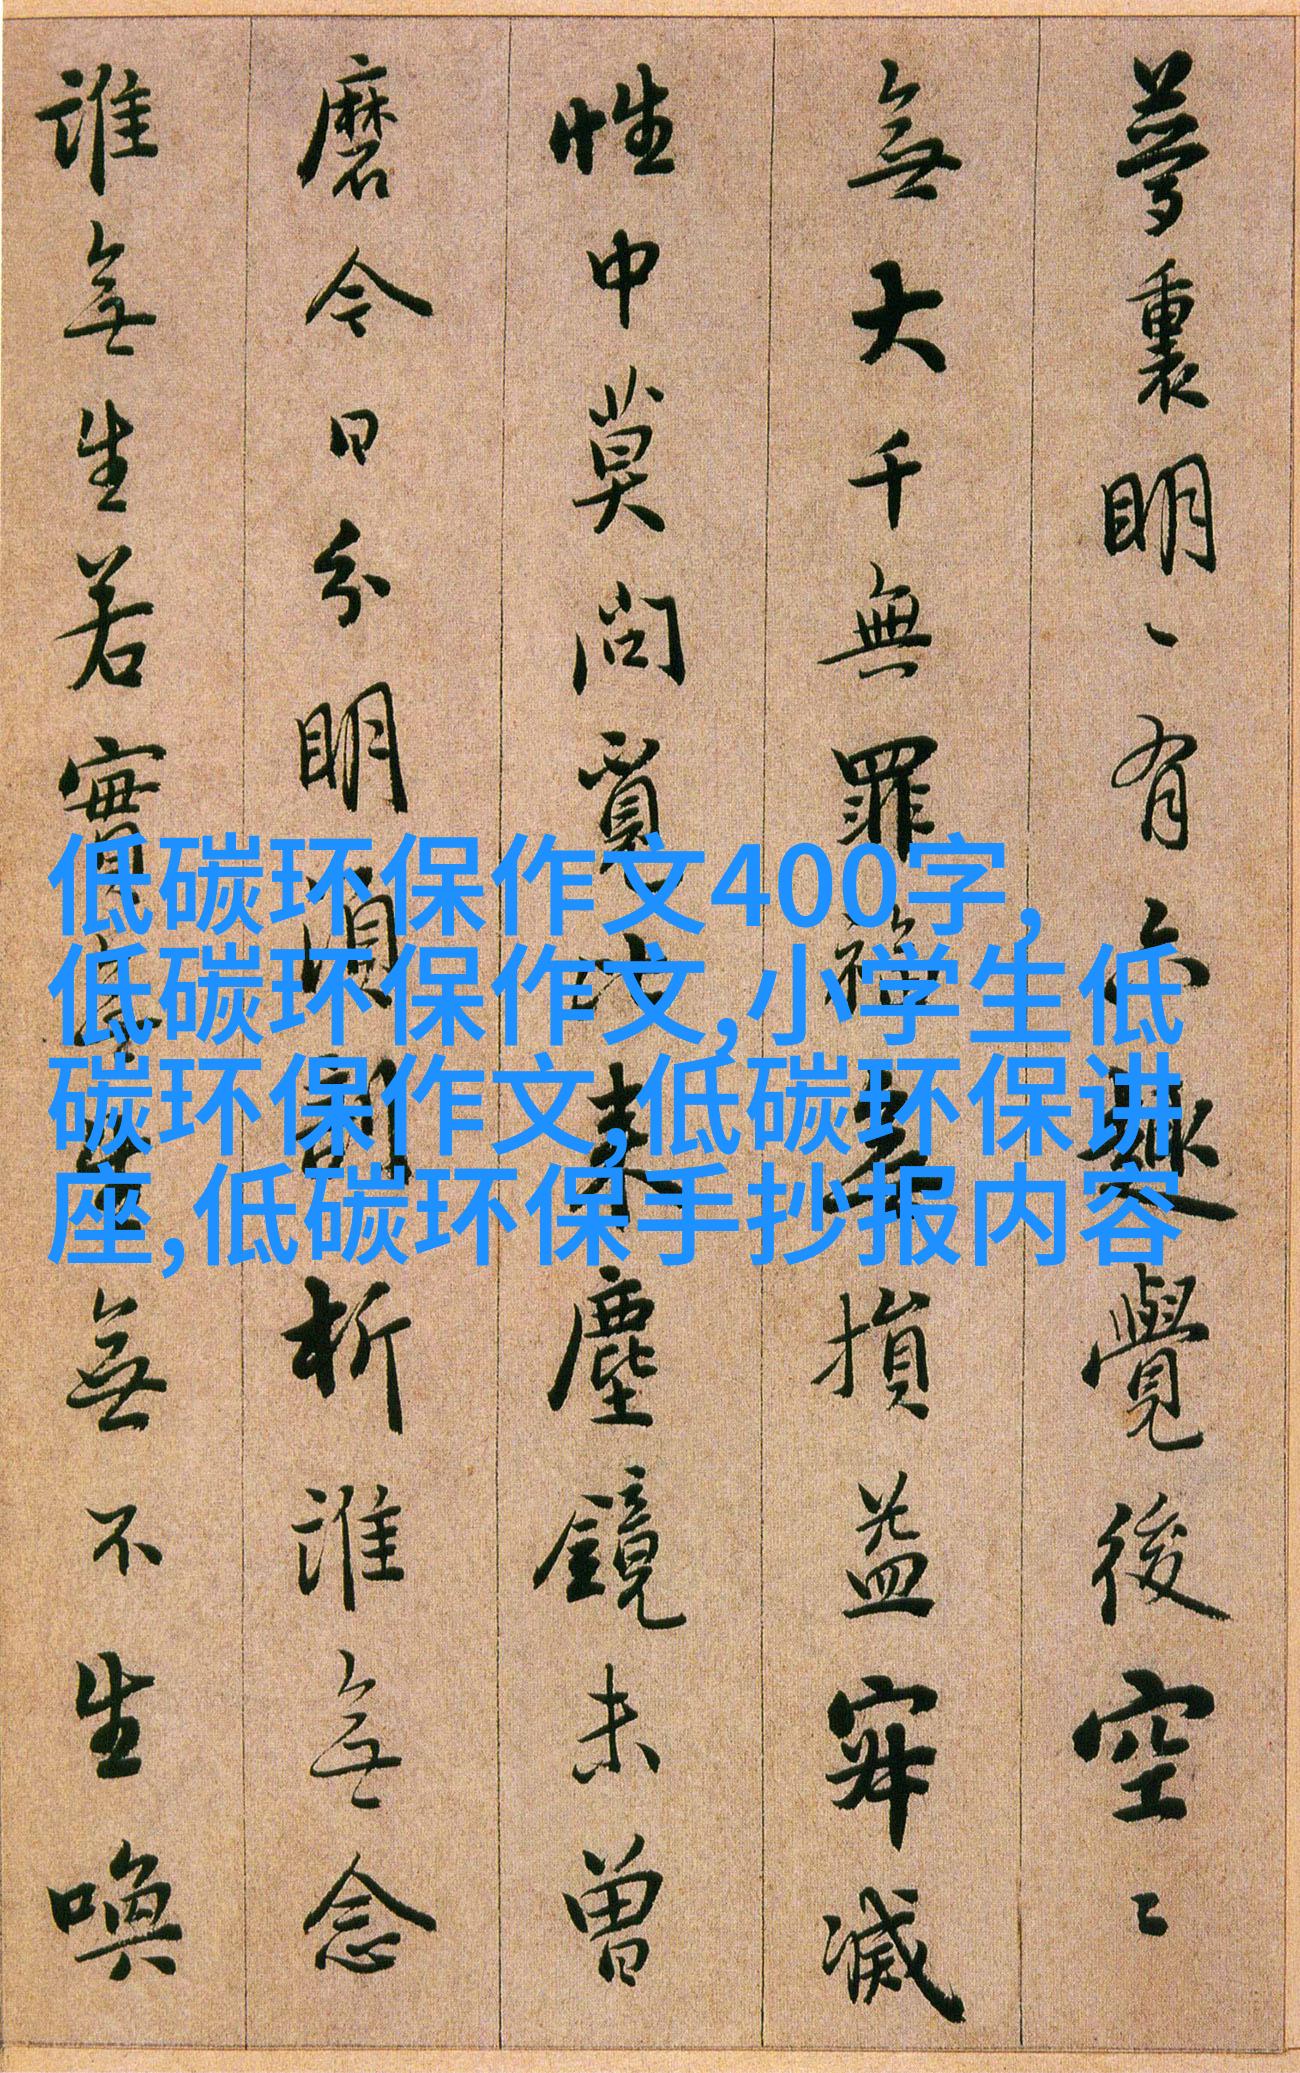 低碳环保作文400字,
低碳环保作文,小学生低
碳环保作文,低碳环保讲
座,低碳环保手抄报内容
夢裏明〻有六趣覺後空〻
無大千無罪福無損益寂滅
性中莫問覓比来塵鏡未曾
磨今日分明須剖析誰無念
誰無生若實無生無不生喚